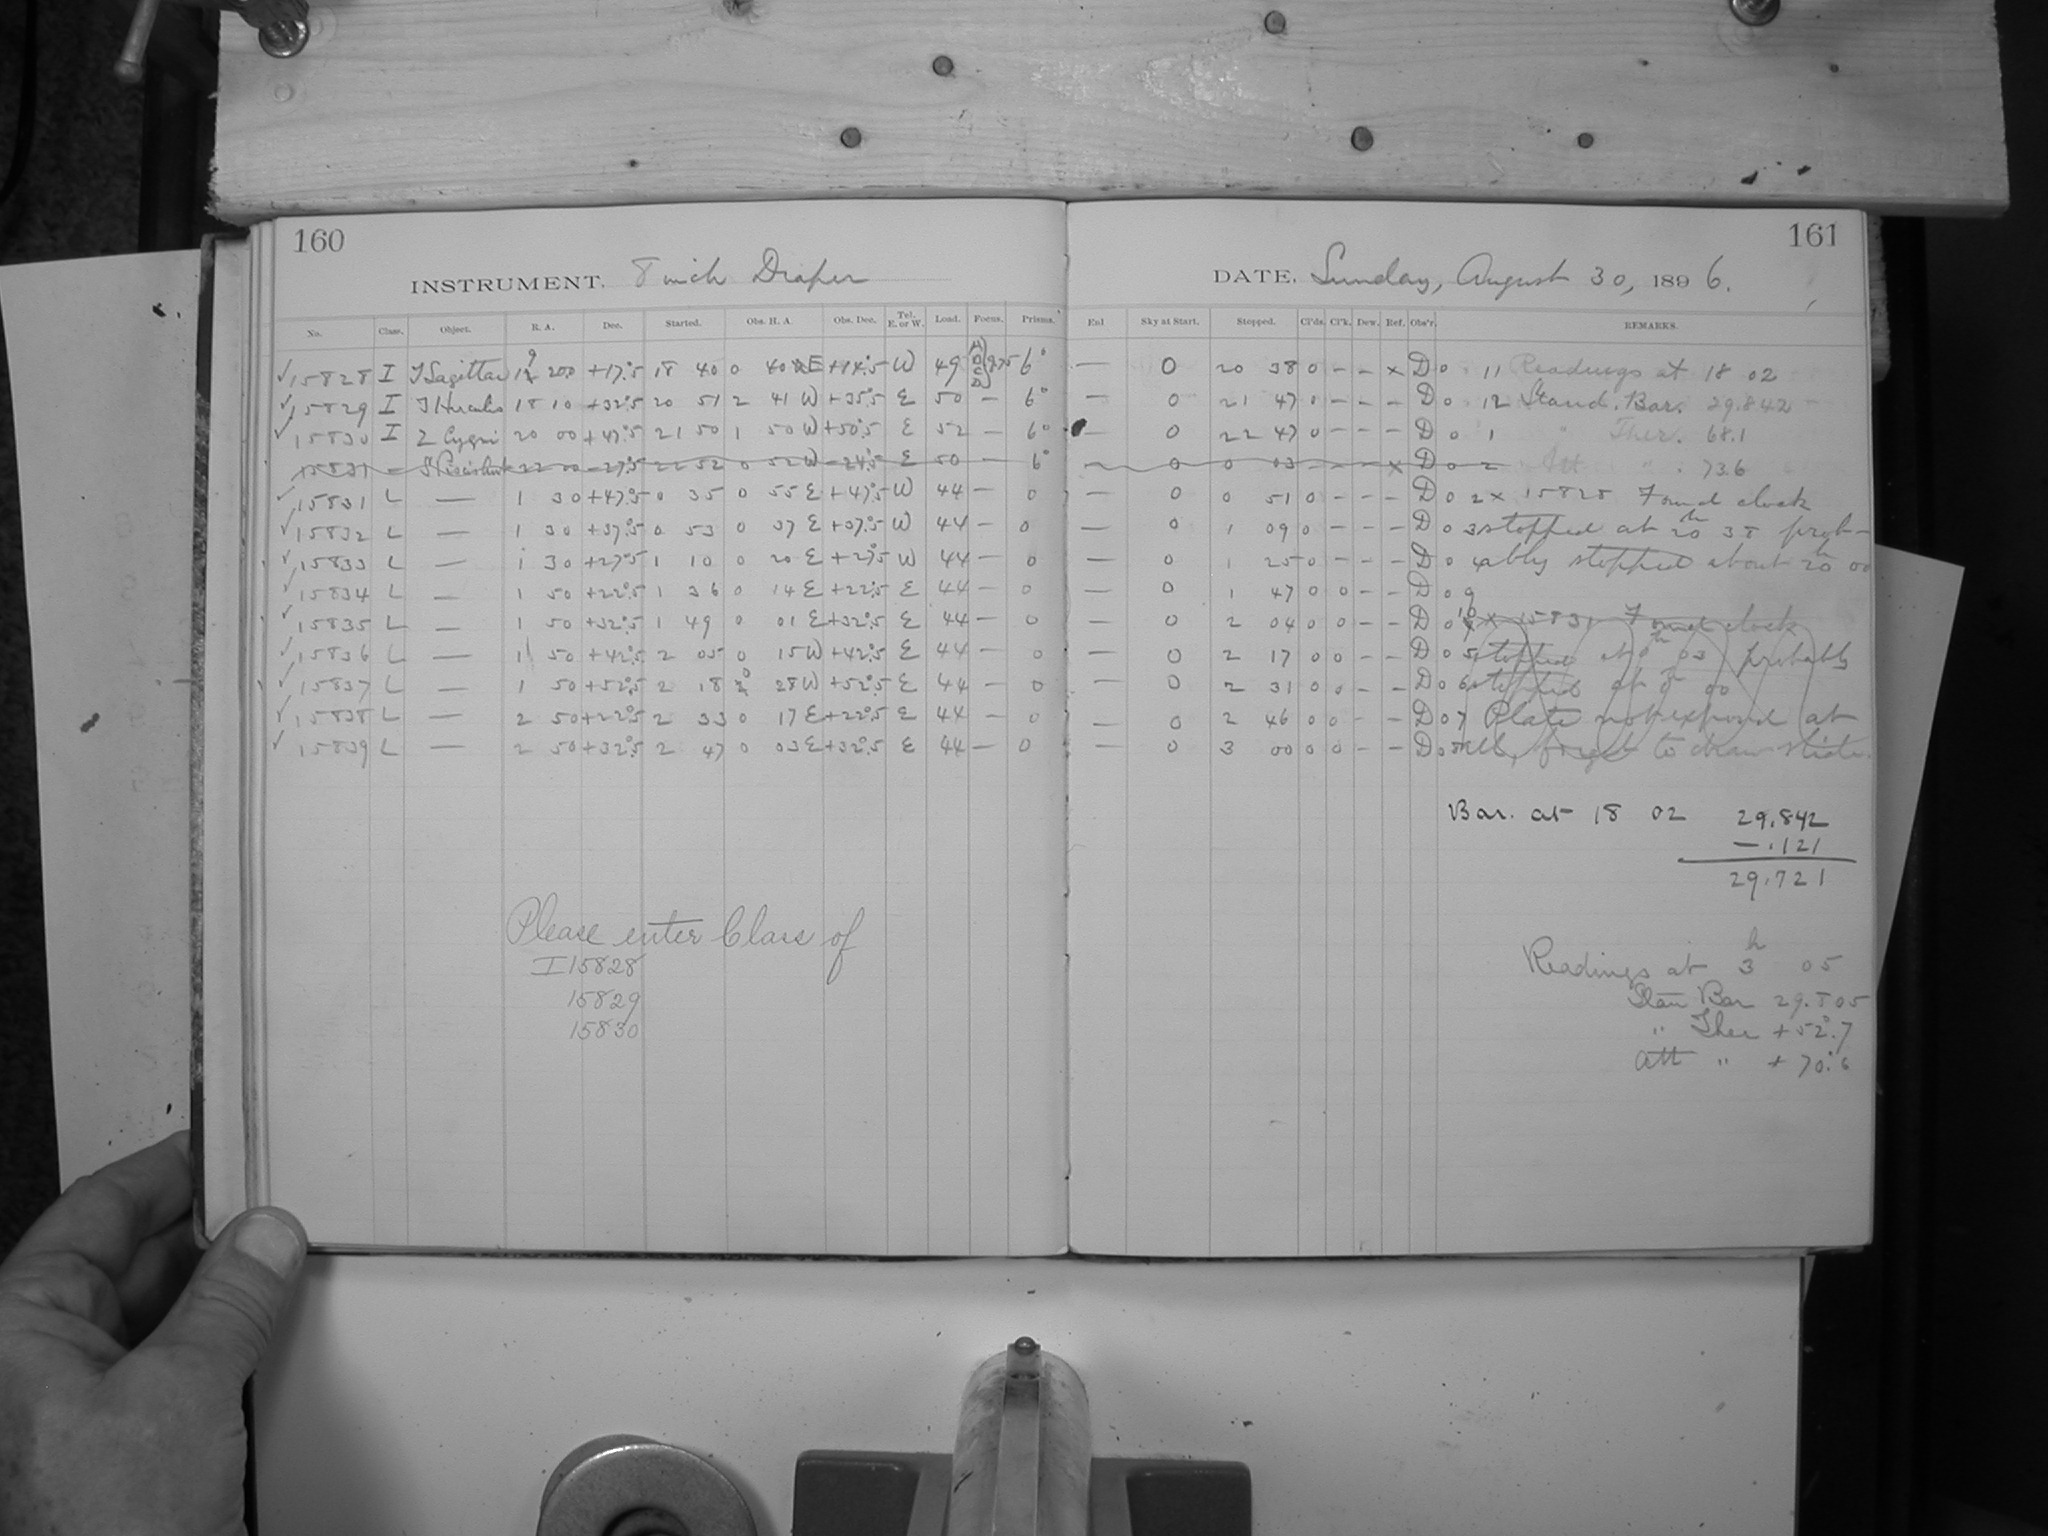 160
INSTRUMENT. 8 inch Draper
No. Class. Object. R. A. Dec. Started. Obs. H. A. Obs. Dec. Tel. E. or W. Load. Focus. Prisms.
✓15828 I T Sagittae 19 200 +17°.5 18 40 0 40 E +14°.5 W 49 9.75 6°
✓15829 I T Herculis 18 10 +32°.5 20 51 2 41 W +35°.5 E 50 — 6°
✓15830 I Z Cygni 20 00 +47°.5 21 50 1 50 W +50°.5 E 52 — 6°
15831 — 22 50 -27°.5 22 52 0 52 W -24°.5 E 50 — 6°
✓15831 L — 1 30 +47°.5 0 35 0 55 E +47°.5 W 44 — 0
✓15832 L — 1 30 +37°.5 0 53 0 37 E +37°.5 W 44 — 0
✓15833 L — 1 30 +27°.5 1 10 0 20 E +27°.5 W 44 — 0
✓15834 L — 1 50 +22°.5 1 36 0 14 E +22°.5 E 44 — 0
✓15835 L — 1 50 +32°.5 1 49 0 01 E +32°.5 E 44 — 0
✓15836 L — 1 50 +42°.5 2 05 0 15 W +42°.5 E 44 — 0
✓15837 L — 1 50 +52°.5 2 18 0 28 W +52°.5 E 44 — 0
✓15838 L — 2 50 +22°.5 2 33 0 17 E +22°.5 E 44 — 0
✓15839 L — 2 50 +32°.5 2 47 0 03 E +32°.5 E 44 — 0
Please enter Class of
I 15828
15829
15830
161
DATE. Sunday, August 30, 1896.
Enl Sky at Start. Stopped. Cl'ds. Cl'k. Dew. Ref. Obs'r. REMARKS.
— 0 20 38 0 - - x D 0 11 Readings at 18 02
— 0 21 47 0 - - - D 0 12 Stand. Bar. 29.842
— 0 22 47 0 - - - D 0 1 " Ther. 68.1
— 0 0 03 - - - x D 0 2 Att " 73.6
— 0 0 51 0 - - - D 0 2 x 15828 Found clock
— 0 1 09 0 - - - D 0 3 stopped at 20h 38 prob-
— 0 1 25 0 - - - D 0 ably stopped about 20h 00
— 0 1 47 0 0 - - D 0 9
— 0 2 04 0 0 - - D 0 10 x 15831 Found clock
— 0 2 17 0 0 - - D 0 5 stopped at 0h 03 probably
— 0 2 31 0 0 - - D 0 6 stopped at 0h 00
— 0 2 46 0 0 - - D 0 7 Plate not exposed at
— 0 3 00 0 0 - - D 0 8 all, forgot to draw slide.
Bar. at 18 02 29.842
-.121
29.721
Readings at 3h 05
Stan Bar 29.805
" Ther +52°.7
Att " + 70°.6